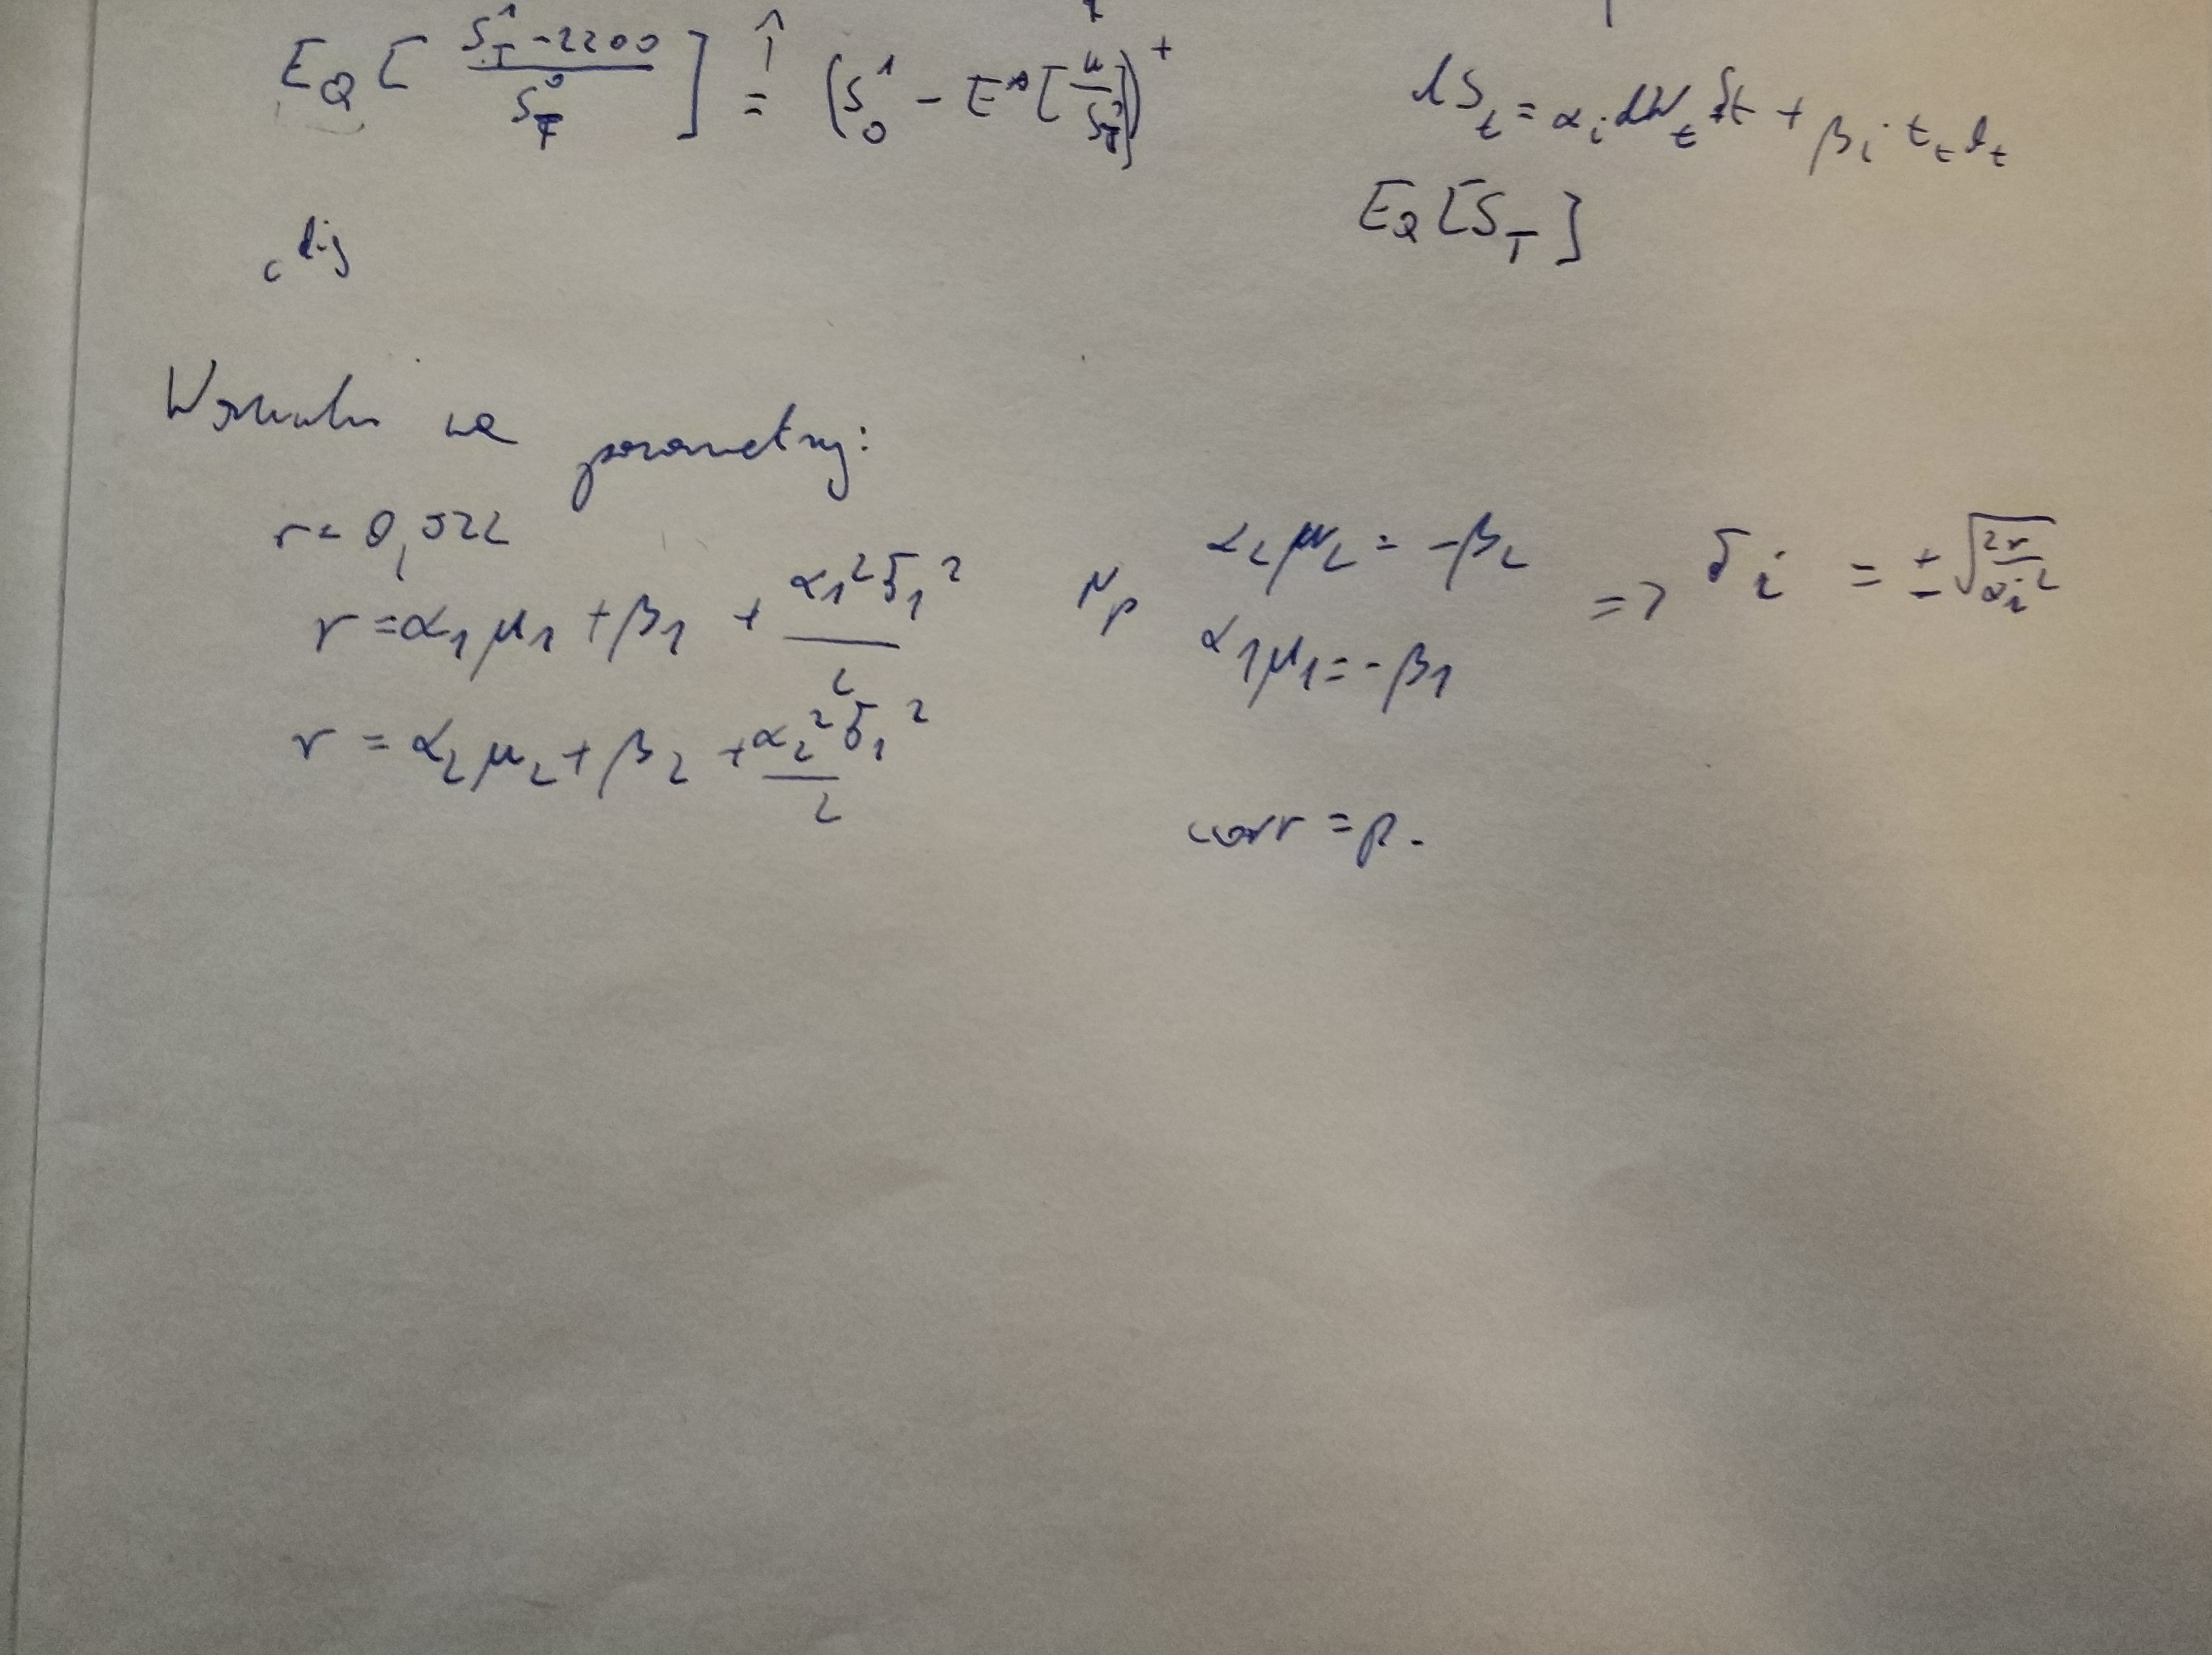 E_Q [ (S_T^1 - 2200) / S_T^0 ] = (S_0^1 - E^Q[ K / S_T^0 ])^+
dS_t = α_i dW_t S_t + β_i · t_t d_t
E_Q [S_T]
c^dig
Warunki na parametry:
r = 0,522
r = α_1 μ_1 + β_1 + α_1^2 σ_1^2 / 2
r = α_2 μ_2 + β_2 + α_2^2 σ_1^2 / 2
Np α_2 μ_2 = -β_2
α_1 μ_1 = -β_1
=> σ_i = ± √(2r / α_i^2)
corr = ρ.